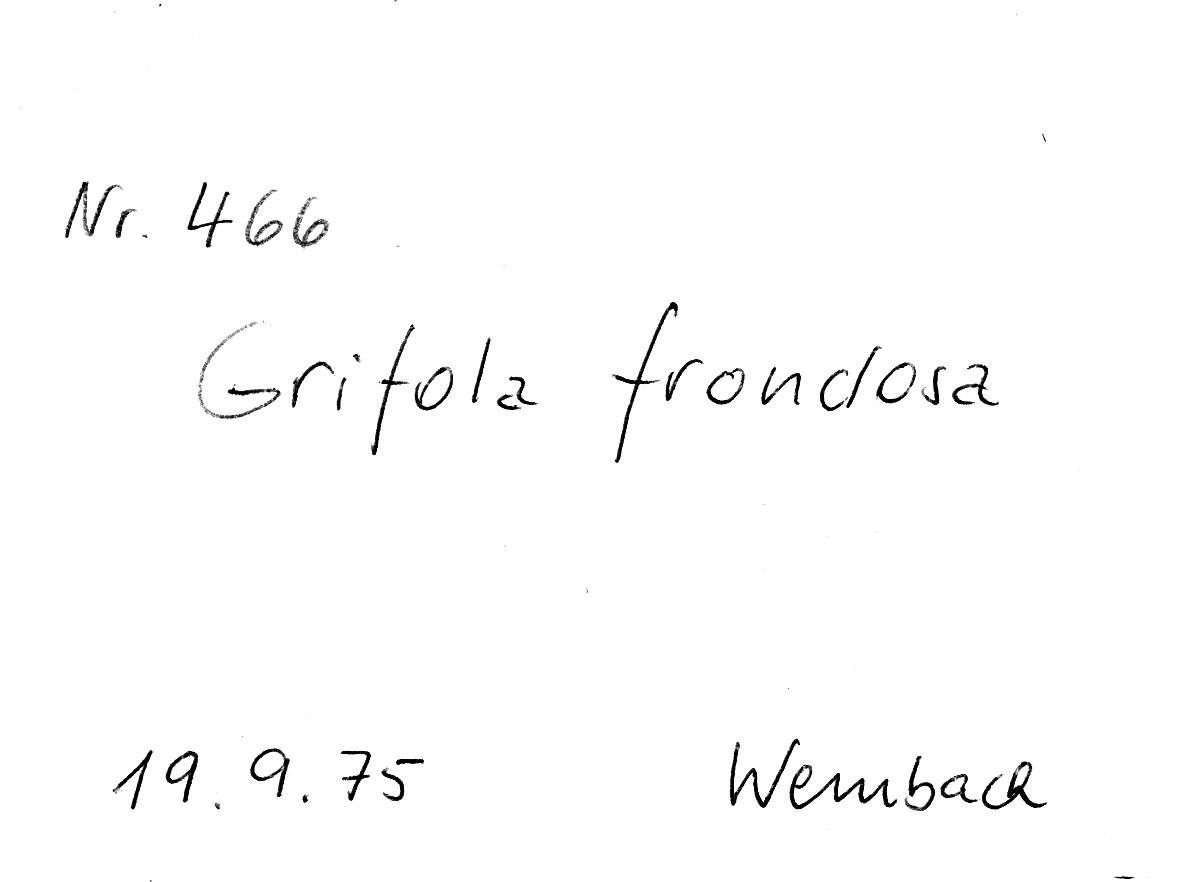 Nr. 466
Grifola frondosa
19.9.75 Wembach